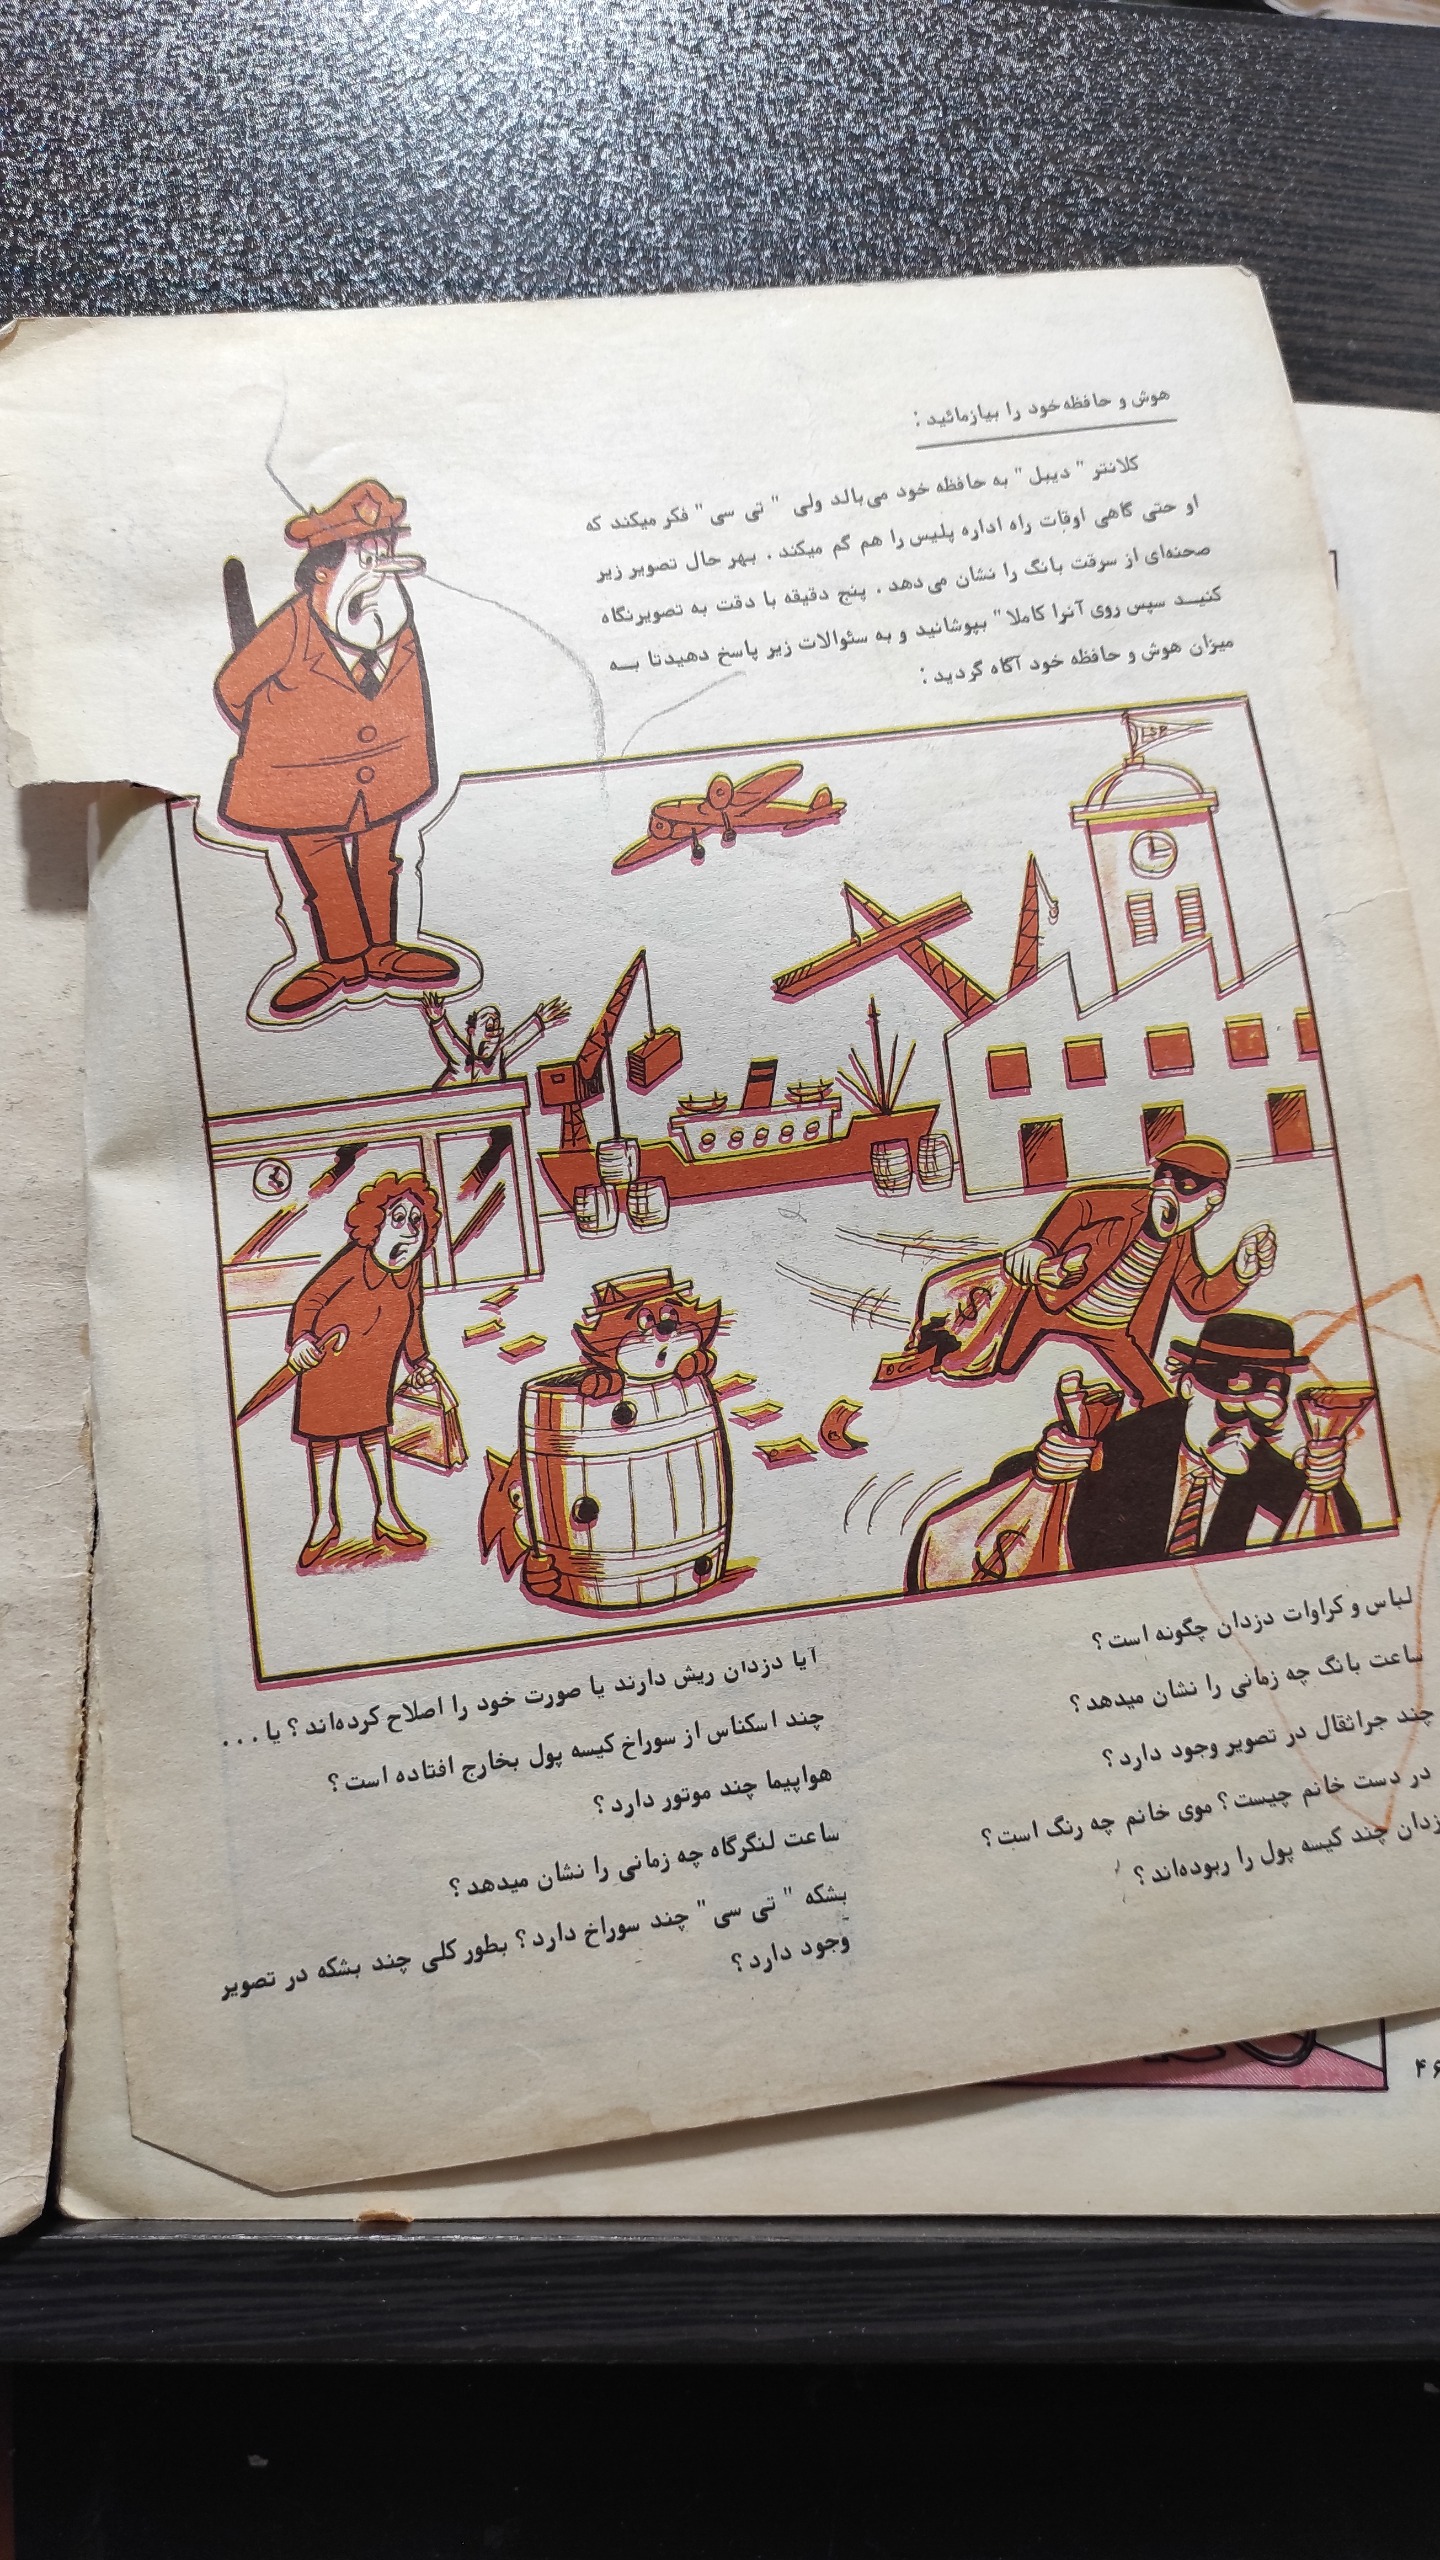 هوش و حافظه خود را بیازمائید :
کلانتر " دیبل " به حافظه خود می‌بالد ولی " تی سی " فکر میکند که
او حتی گاهی اوقات راه اداره پلیس را هم گم میکند . بهر حال تصویر زیر
صحنه‌ای از سرقت بانگ را نشان می‌دهد . پنج دقیقه با دقت به تصویرنگاه
کنیـد سپس روی آنرا کاملا" بپوشانید و به سئوالات زیر پاسخ دهیدتا بـه
میزان هوش و حافظه خود آگاه گردید :
$
$
لباس و کراوات دزدان چگونه است؟
ساعت بانگ چه زمانی را نشان میدهد؟
چند جراثقال در تصویر وجود دارد؟
در دست خانم چیست؟ موی خانم چه رنگ است؟
زدان چند کیسه پول را ربوده‌اند؟
آیا دزدان ریش دارند یا صورت خود را اصلاح کرده‌اند؟ یا . . .
چند اسکناس از سوراخ کیسه پول بخارج افتاده است؟
هواپیما چند موتور دارد؟
ساعت لنگرگاه چه زمانی را نشان میدهد؟
بشکه " تی سی " چند سوراخ دارد؟ بطور کلی چند بشکه در تصویر
وجود دارد؟
۴۶